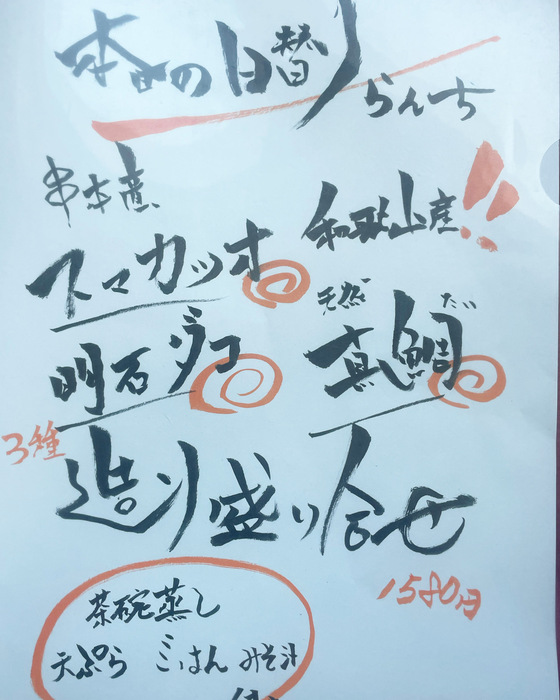 本日の日替り
らんち
串本産
スマカツオ
和歌山産!!
天然
真鯛
だい
明石ダコ
3種
造り盛り合せ
1580円
茶碗蒸し
天ぷら ごはん みそ汁